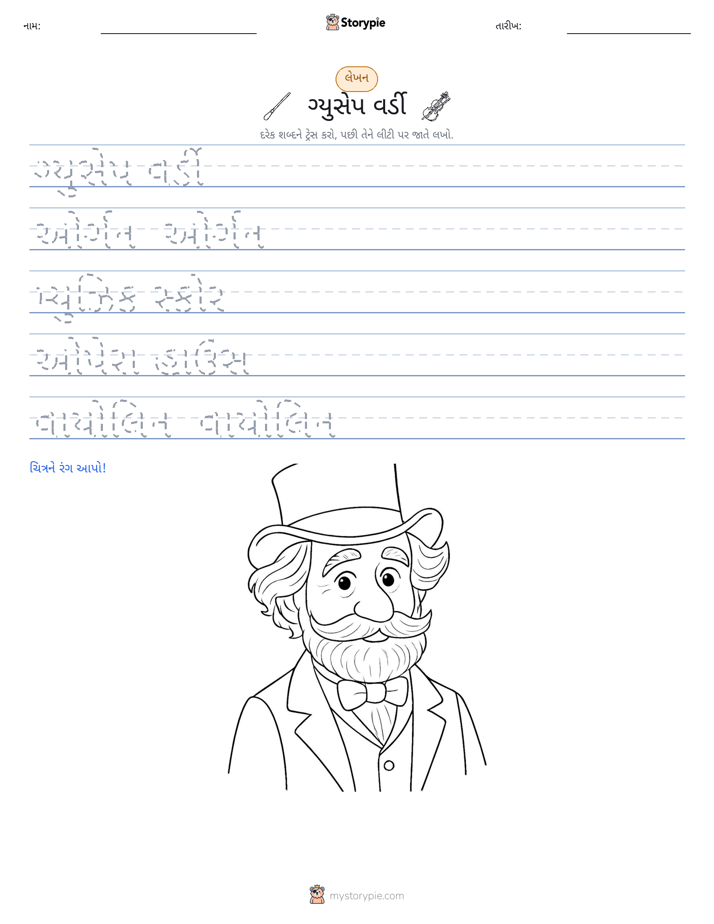 નામ:
Storypie
તારીખ:
લેખન
ગ્યુસેપ વર્ડી
દરેક શબ્દને ટ્રેસ કરો, પછી તેને લીટી પર જાતે લખો.
ગ્યુસેપ વર્ડી
ઓર્ગન ઓર્ગન
મ્યુઝિક સ્કોર
ઓપેરા હાઉસ
વાયોલિન વાયોલિન
ચિત્રને રંગ આપો!
mystorypie.com